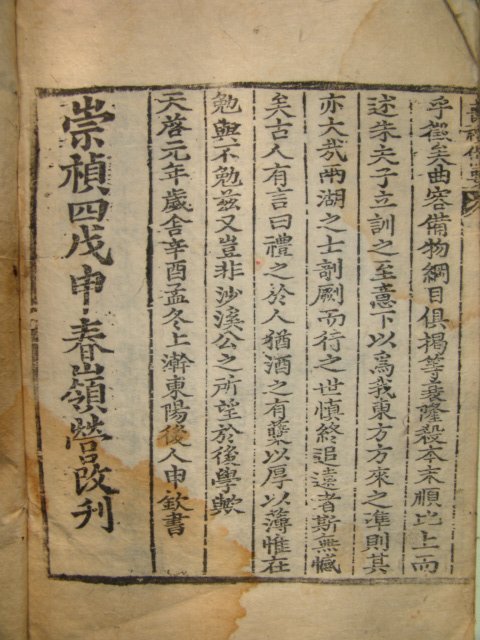 乎徵矣曲容備物綱目俱揭等衰隆殺本末順比上而
述朱夫子立訓之至意下以爲我東方方來之準則其
亦大哉兩湖之士剞劂而行之世慎終追遠者斯無憾
矣古人有言曰禮之於人猶酒之有糵以厚以薄惟在
勉與不勉兹又豈非沙溪公之所望於後學歟
天啓元年歲舍辛酉孟冬上澣東陽後人申欽書
崇禎四戊申春嶺營改刊